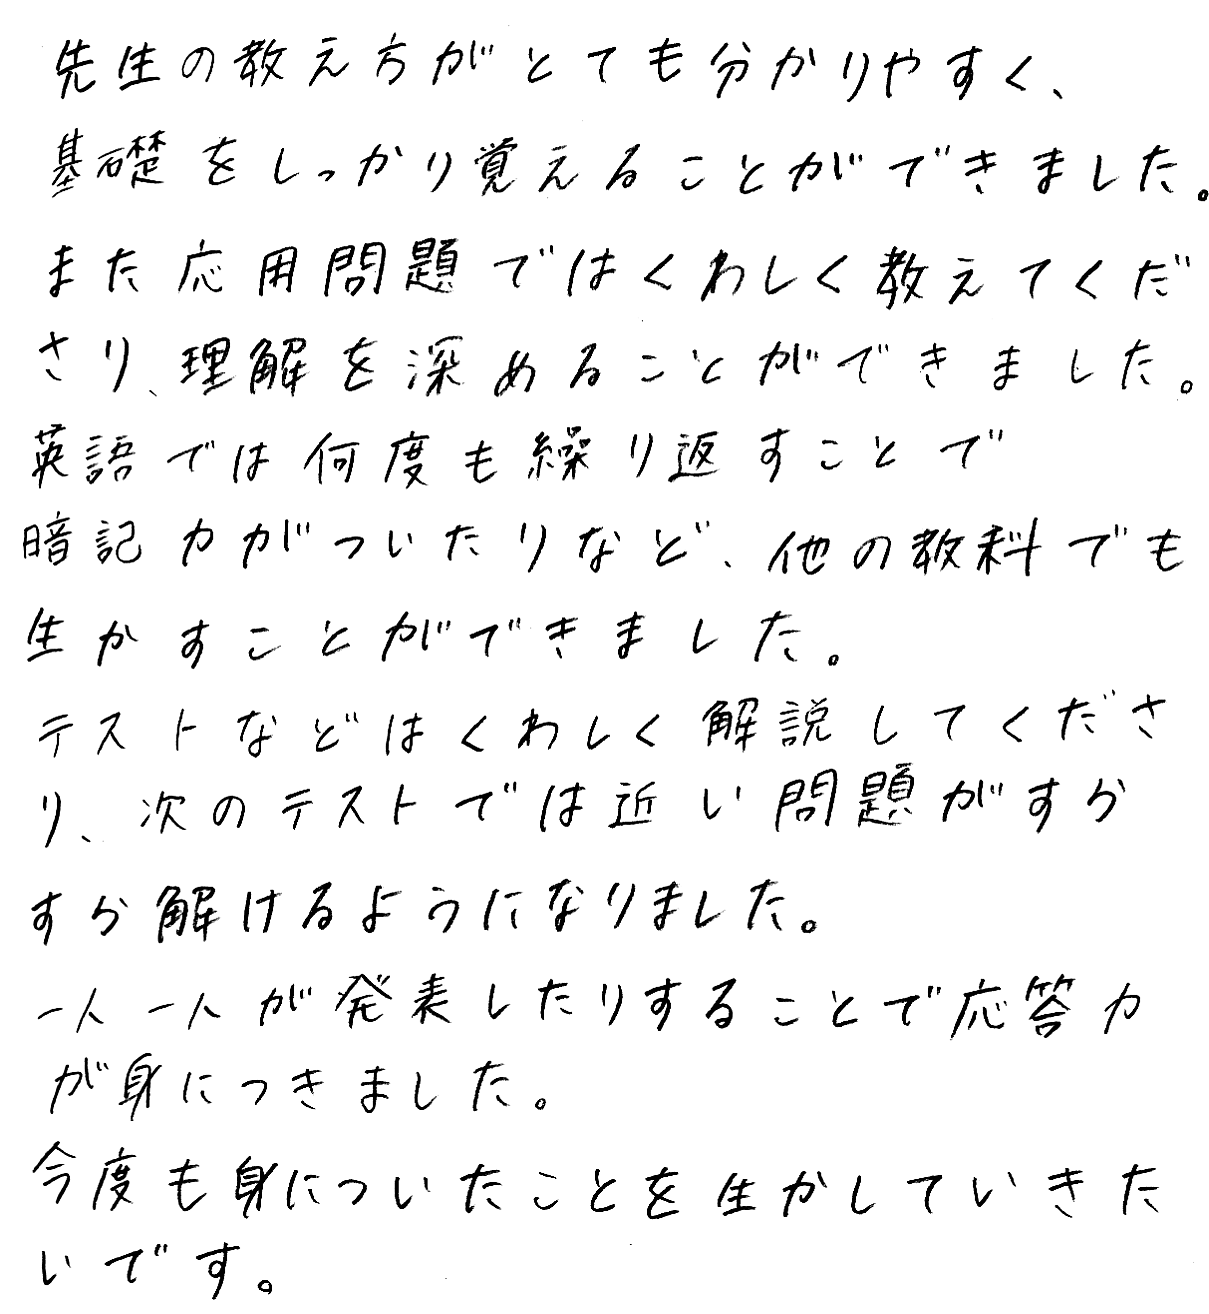 先生の教え方がとても分かりやすく、
基礎をしっかり覚えることができました。
また応用問題ではくわしく教えてくだ
さり、理解を深めることができました。
英語では何度も繰り返すことで
暗記力がついたりなど、他の教科でも
生かすことができました。
テストなどはくわしく解説してくださ
り、次のテストでは近い問題がすら
すら解けるようになりました。
一人一人が発表したりすることで応答力
が身につきました。
今度も身についたことを生かしていきた
いです。